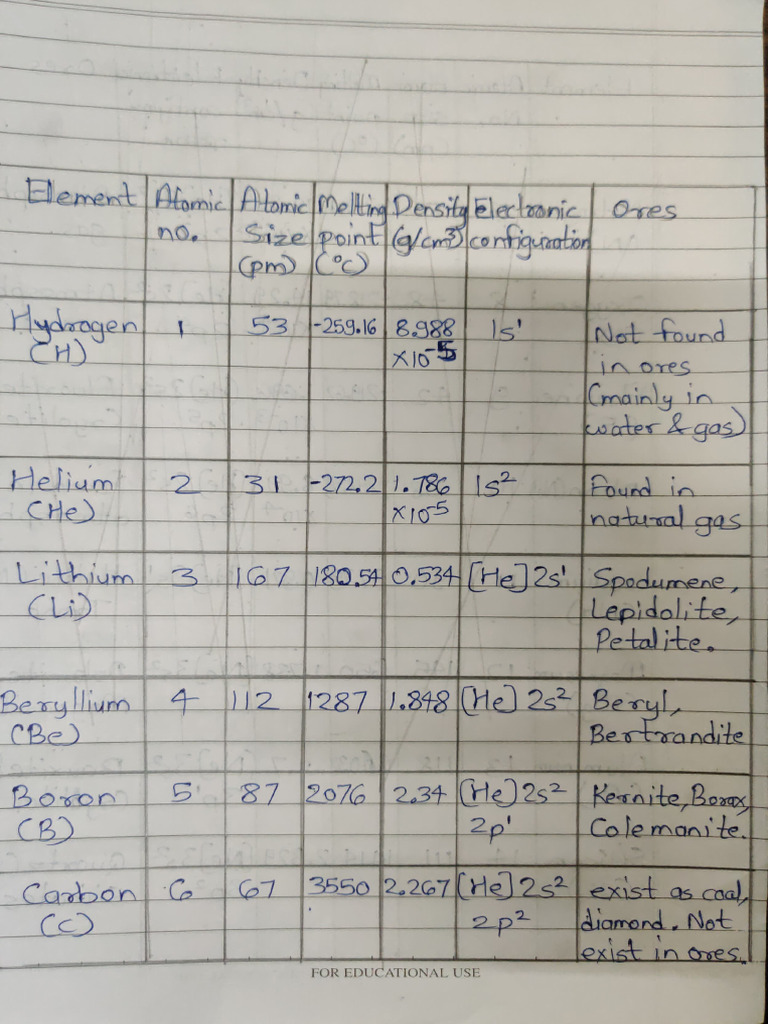 Element Atomic no. Atomic Size (pm) Melting point (°C) Density (g/cm³) Electronic configuration Ores
Hydrogen (H) 1 53 -259.16 8.988 ×10⁻⁵ 1s¹ Not found in ores (mainly in water & gas)
Helium (He) 2 31 -272.2 1.786 ×10⁻⁵ 1s² Found in natural gas
Lithium (Li) 3 167 180.54 0.534 [He] 2s¹ Spodumene, Lepidolite, Petalite.
Beryllium (Be) 4 112 1287 1.848 [He] 2s² Beryl, Bertrandite
Boron (B) 5 87 2076 2.34 [He] 2s² 2p¹ Kernite, Borax, Colemanite.
Carbon (C) 6 67 3550 2.267 [He] 2s² 2p² exist as coal, diamond. Not exist in ores.
FOR EDUCATIONAL USE